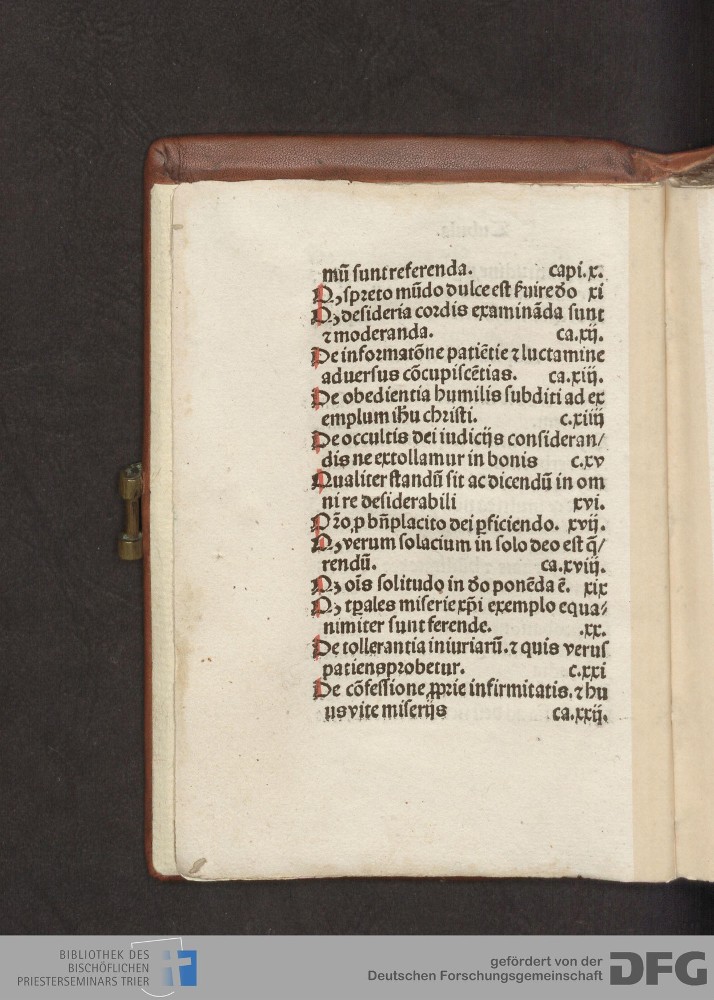 mū sunt referenda. capi.x.
Qꝫ spreto mūdo dulce est ẜuire do xi
Qꝫ desideria cordis examināda sunt
ꝛ moderanda. ca.xij.
De informatōne patiētie ꝛ luctamine
aduersus cōcupiscētias. ca.xiij.
De obedientia humilis subditi ad ex
emplum ihu christi. c.xiiij
De occultis dei iudicijs consideran/
dis ne extollamur in bonis c.xv
Qualiter standū sit ac dicendū in om
ni re desiderabili xvi.
Orō ꝓ bn̄placito dei ꝑficiendo. xvij.
Qꝫ verum solacium in solo deo est q̄/
rendū. ca.xviij.
Qꝫ oīs solitudo in do ponēda ē. xix
Qꝫ tꝑales miserie xp̄i exemplo equa/
nimiter sunt ferende. .xx.
De tollerantia iniuriarū. ꝛ quis verus
patiens probetur. c.xxi
De cōfessione ꝓprie infirmitatis. ꝛ hu
ius vite miserijs ca.xxij.
BIBLIOTHEK DES
BISCHÖFLICHEN
PRIESTERSEMINARS TRIER
gefördert von der
Deutschen Forschungsgemeinschaft
DFG